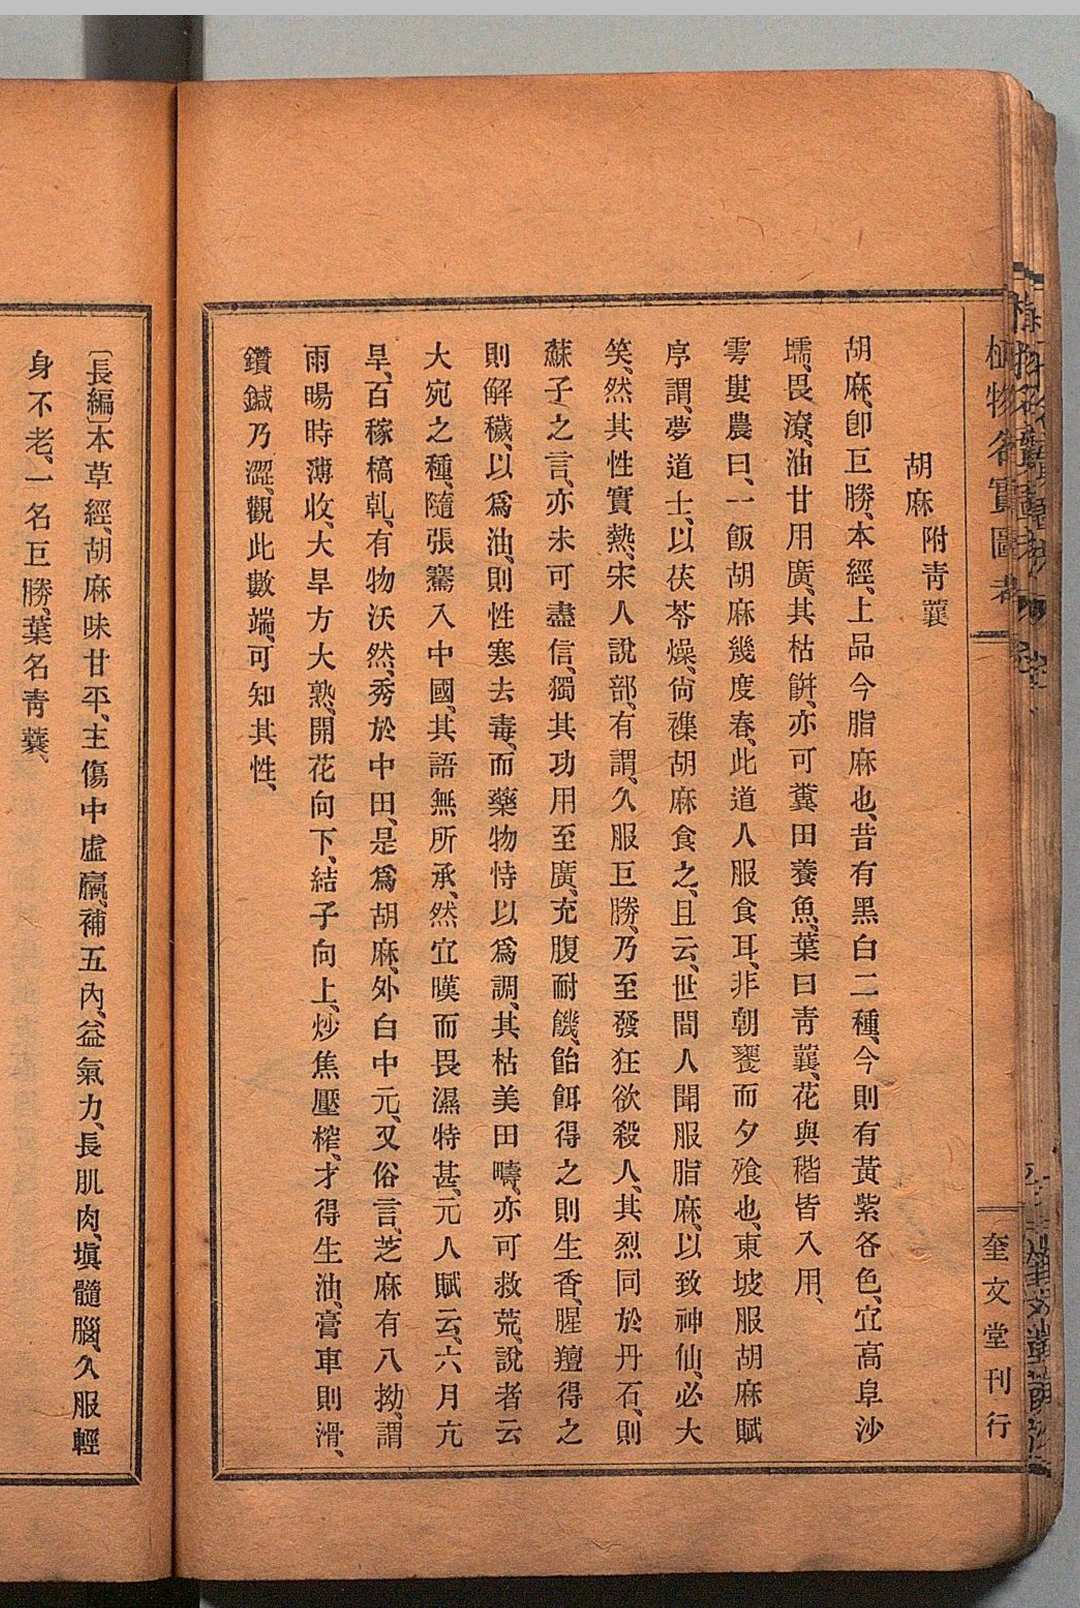 植物名實圖考
奎文堂刊行
胡麻 附青蘘
胡麻、卽巨勝、本經、上品今脂麻也、昔有黑白二種、今則有黃紫各色、宜高阜沙
壖、畏潦、油甘用廣、其枯餅、亦可糞田養魚、葉曰青蘘、花與稭皆入用、
雩婁農曰、一飯胡麻幾度春、此道人服食耳、非朝饔而夕飱也、東坡服胡麻賦
序謂、夢道士、以茯苓燥、尙襍胡麻食之、且云、世間人聞服脂麻、以致神仙、必大
笑、然其性實熱、宋人說部、有謂、久服巨勝、乃至發狂欲殺人、其烈同於丹石、則
蘇子之言、亦未可盡信、獨其功用至廣、充腹耐饑、飴餌得之則生香、腥羶得之
則解穢、以爲油、則性寒去毒、而藥物恃以爲調、其枯美田疇、亦可救荒、說者云
大宛之種、隨張騫入中國、其語無所承、然宜暵而畏濕特甚、元人賦云、六月亢
旱、百稼槁乾、有物沃然、秀於中田、是爲胡麻、外白中元、又俗言、芝麻有八拗、謂
雨暘時薄收、大旱方大熟、開花向下、結子向上、炒焦壓榨、才得生油、膏車則滑、
鑽鍼乃澀、觀此數端、可知其性、
〔長編〕本草經、胡麻味甘平、主傷中虛羸、補五內、益氣力、長肌肉、塡髓腦、久服輕
身不老、一名巨勝、葉名青蘘、